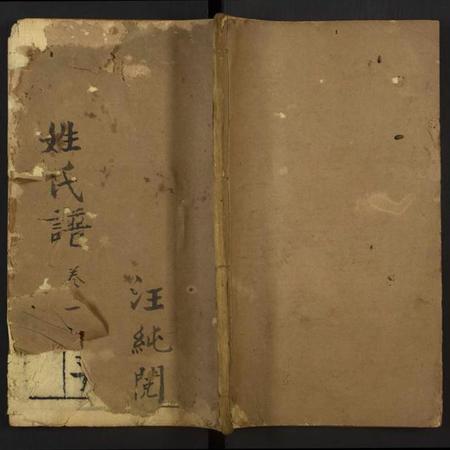 姓氏譜卷一
汪純閱